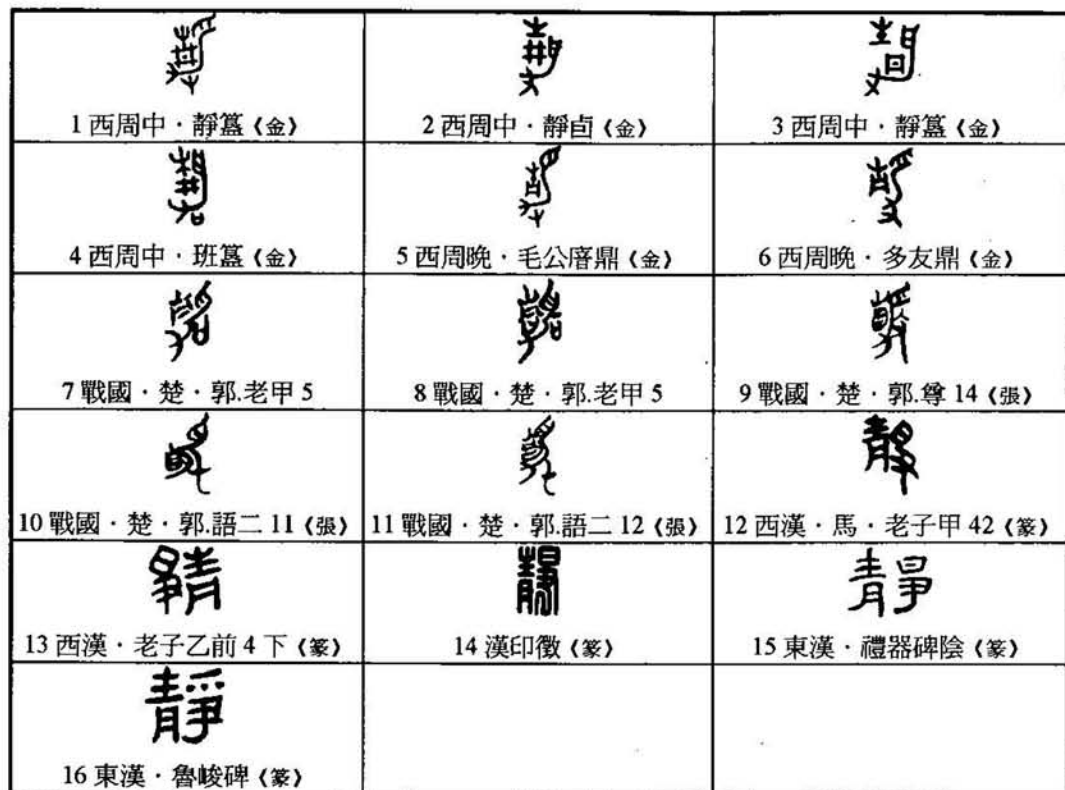 1 西周中．靜簋《金》
2 西周中．靜卣《金》
3 西周中．靜簋《金》
4 西周中．班簋《金》
5 西周晚．毛公㢑鼎《金》
6 西周晚．多友鼎《金》
7 戰國．楚．郭.老甲 5
8 戰國．楚．郭.老甲 5
9 戰國．楚．郭.尊 14《張》
10 戰國．楚．郭.語二 11《張》
11 戰國．楚．郭.語二 12《張》
12 西漢．馬．老子甲 42《篆》
13 西漢．老子乙前 4 下《篆》
14 漢印徵《篆》
15 東漢．禮器碑陰《篆》
16 東漢．魯峻碑《篆》